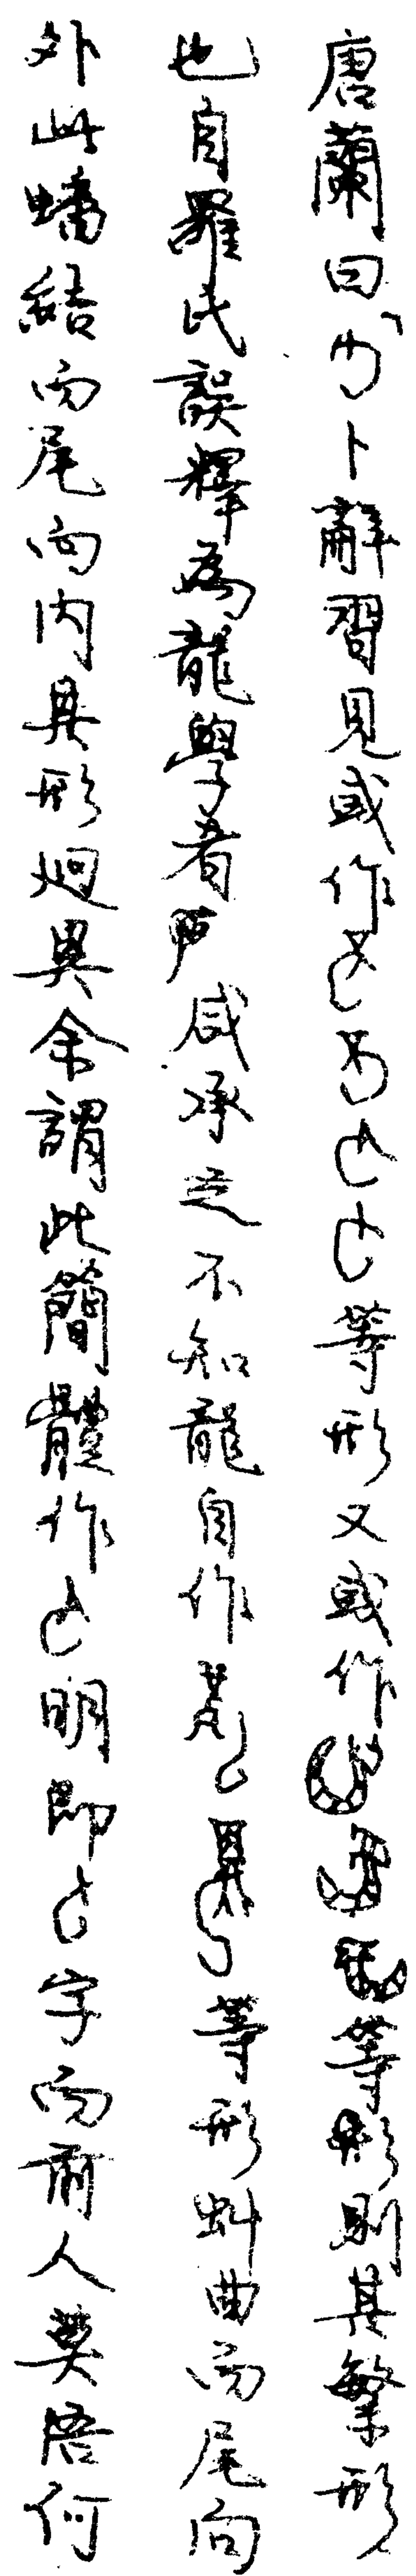 唐蘭曰「卜辭習見或作等形又或作等形則其繁形
也自羅氏誤釋為龍學者咸承之不知龍自作等形虯曲而尾向
外此蟠結而尾向內其形迥異余謂此簡體作明即字而前人莫悟何